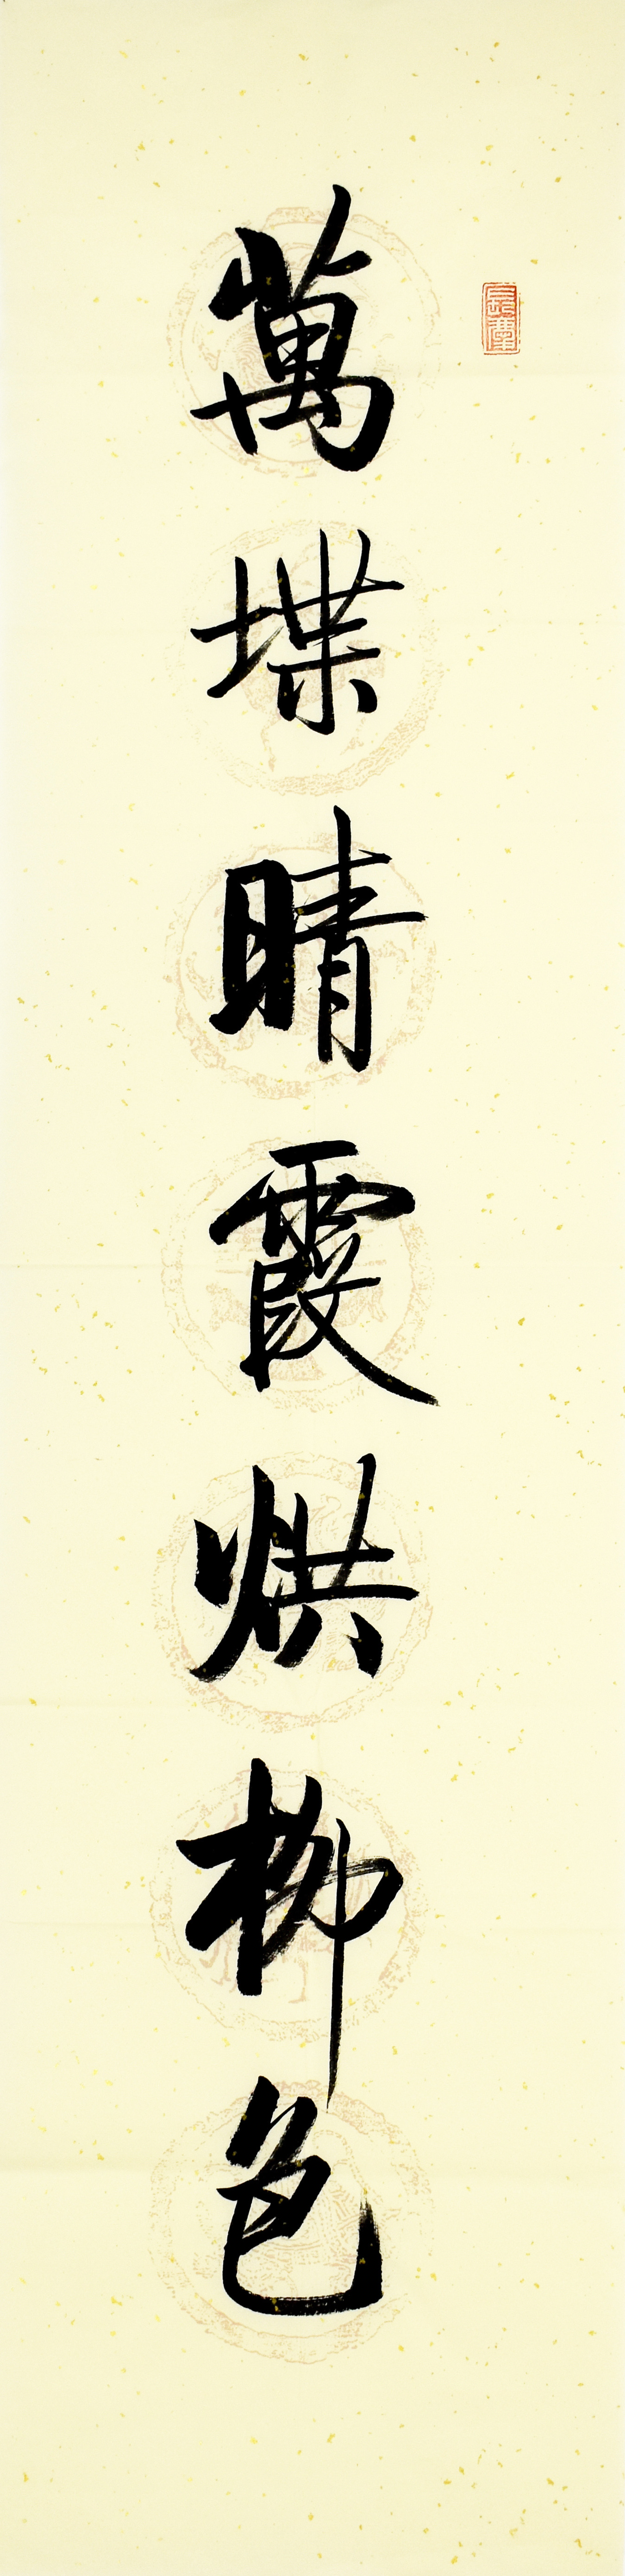 萬堞晴霞烘柳色